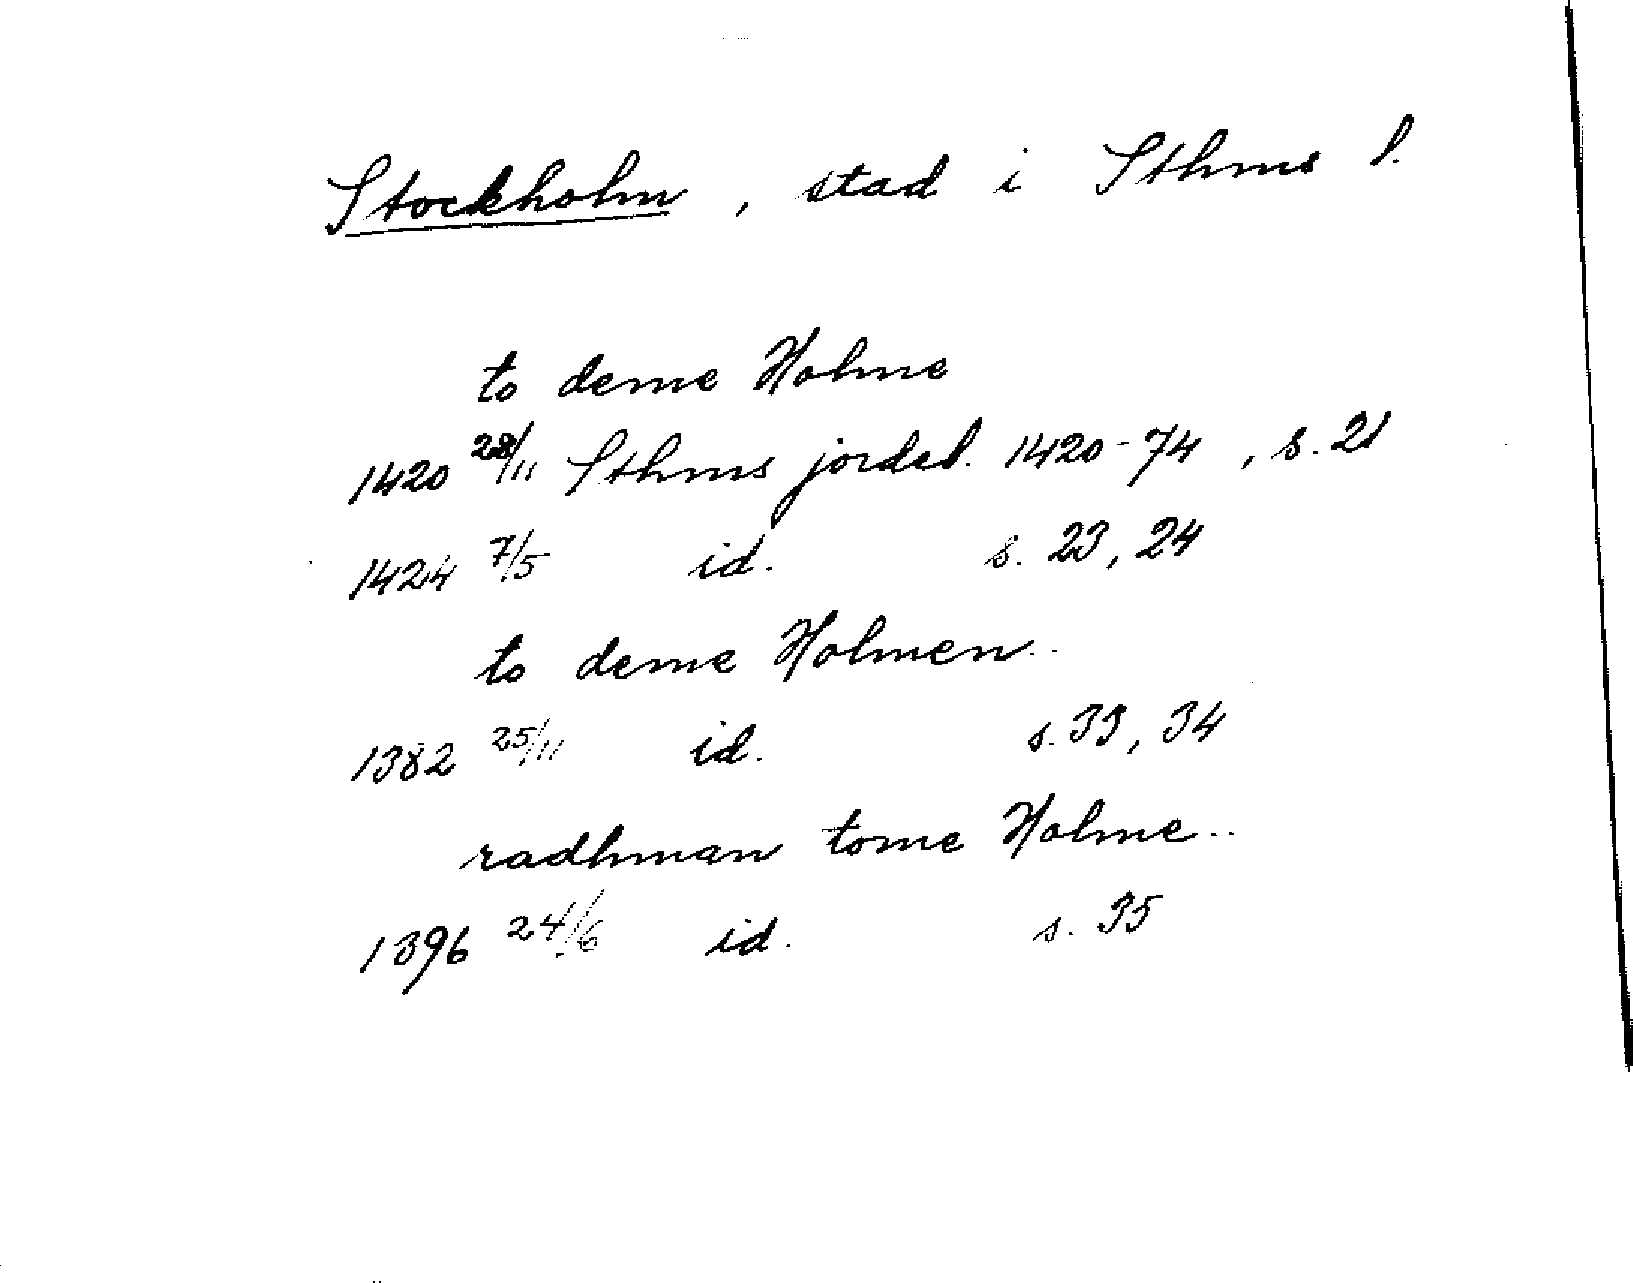 Stockholm, stad i Sthms l.
to deme Holme
1420 28/11 Sthms jordeb. 1420-74, s. 21
1424 7/5 id. s. 23, 24
to deme Holmen
1382 25/11 id. s. 33, 34
radhman tome Holme
1396 24/6 id. s. 35